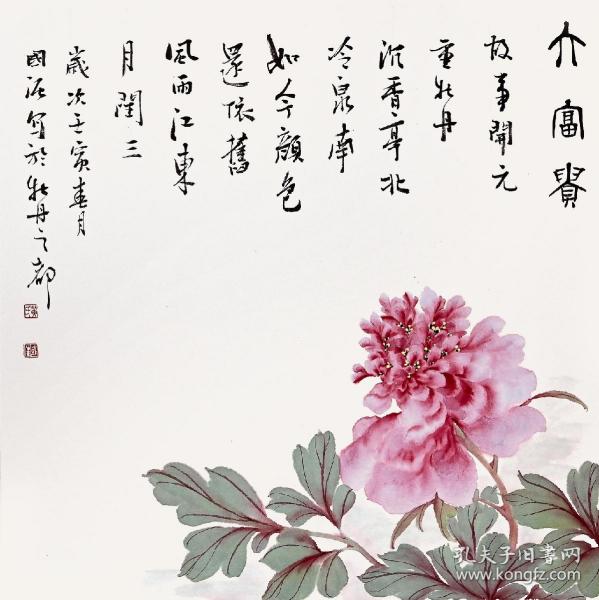 大富貴
故事開元
重牡丹
沉香亭北
冷泉南
如今顏色
還依舊
風雨江東
月閏三
歲次壬寅春月
國派写於牡丹之都
孔夫子旧書网
www.kongfz.com